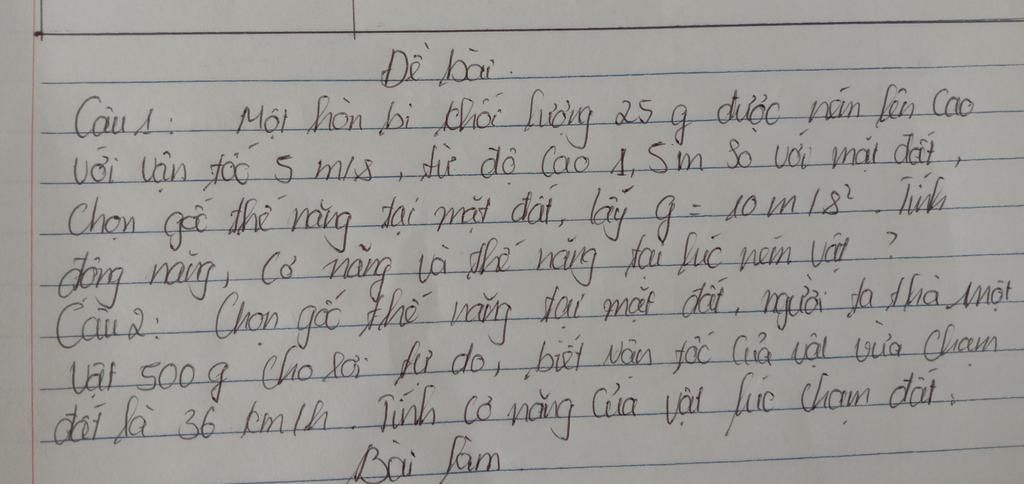 Đề bài.
Câu 1: Một hòn bi khối lượng 25 g được ném lên cao
với vận tốc 5 m/s, từ độ cao 1,5m so với mặt đất,
Chọn gốc thế năng tại mặt đất, lấy g = 10 m/s². Tính
động năng, cơ năng và thế năng tại lúc ném vật ?
Câu 2: Chọn gốc thế năng tại mặt đất, người ta thả một
vật 500 g cho rơi tự do, biết vận tốc của vật vừa chạm
đất là 36 km/h. Tính cơ năng của vật lúc chạm đất.
Bài làm